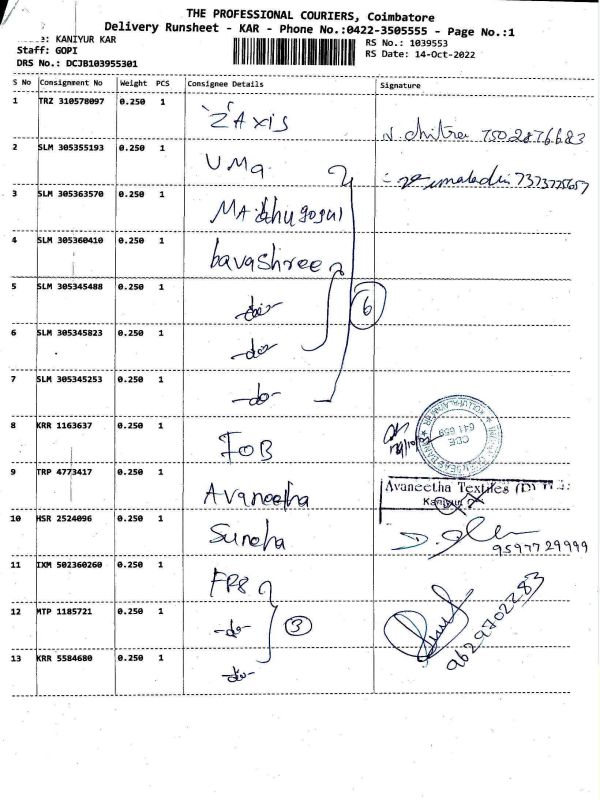 THE PROFESSIONAL COURIERS, Coimbatore
Delivery Runsheet - KAR - Phone No.:0422-3505555 - Page No.:1
KANIYUR KAR
RS No.: 1039553
Staff: GOPI
RS Date: 14-Oct-2022
DRS No.: DCJB103955301
S No Consignment No Weight PCS Consignee Details Signature
1 TRZ 310578097 0.250 1 Z Axis chitra 7502876683
2 SLM 305355193 0.250 1 UMa
3 SLM 305363570 0.250 1 Madhu gogul
4 SLM 305360410 0.250 1 bavashree
5 SLM 305345488 0.250 1 -do- 6
6 SLM 305345823 0.250 1 -do-
7 SLM 305345253 0.250 1 -do-
8 KRR 1163637 0.250 1 IOB
CDE
641 659
9 TRP 4773417 0.250 1 Avaneetha Avaneetha Textiles
Kaniyur
10 HSR 2524096 0.250 1 Suneha 9597729999
11 IXM 502360260 0.250 1 FPS
12 MTP 1185721 0.250 1 -do- 3 9629702283
13 KRR 5584680 0.250 1 -do-